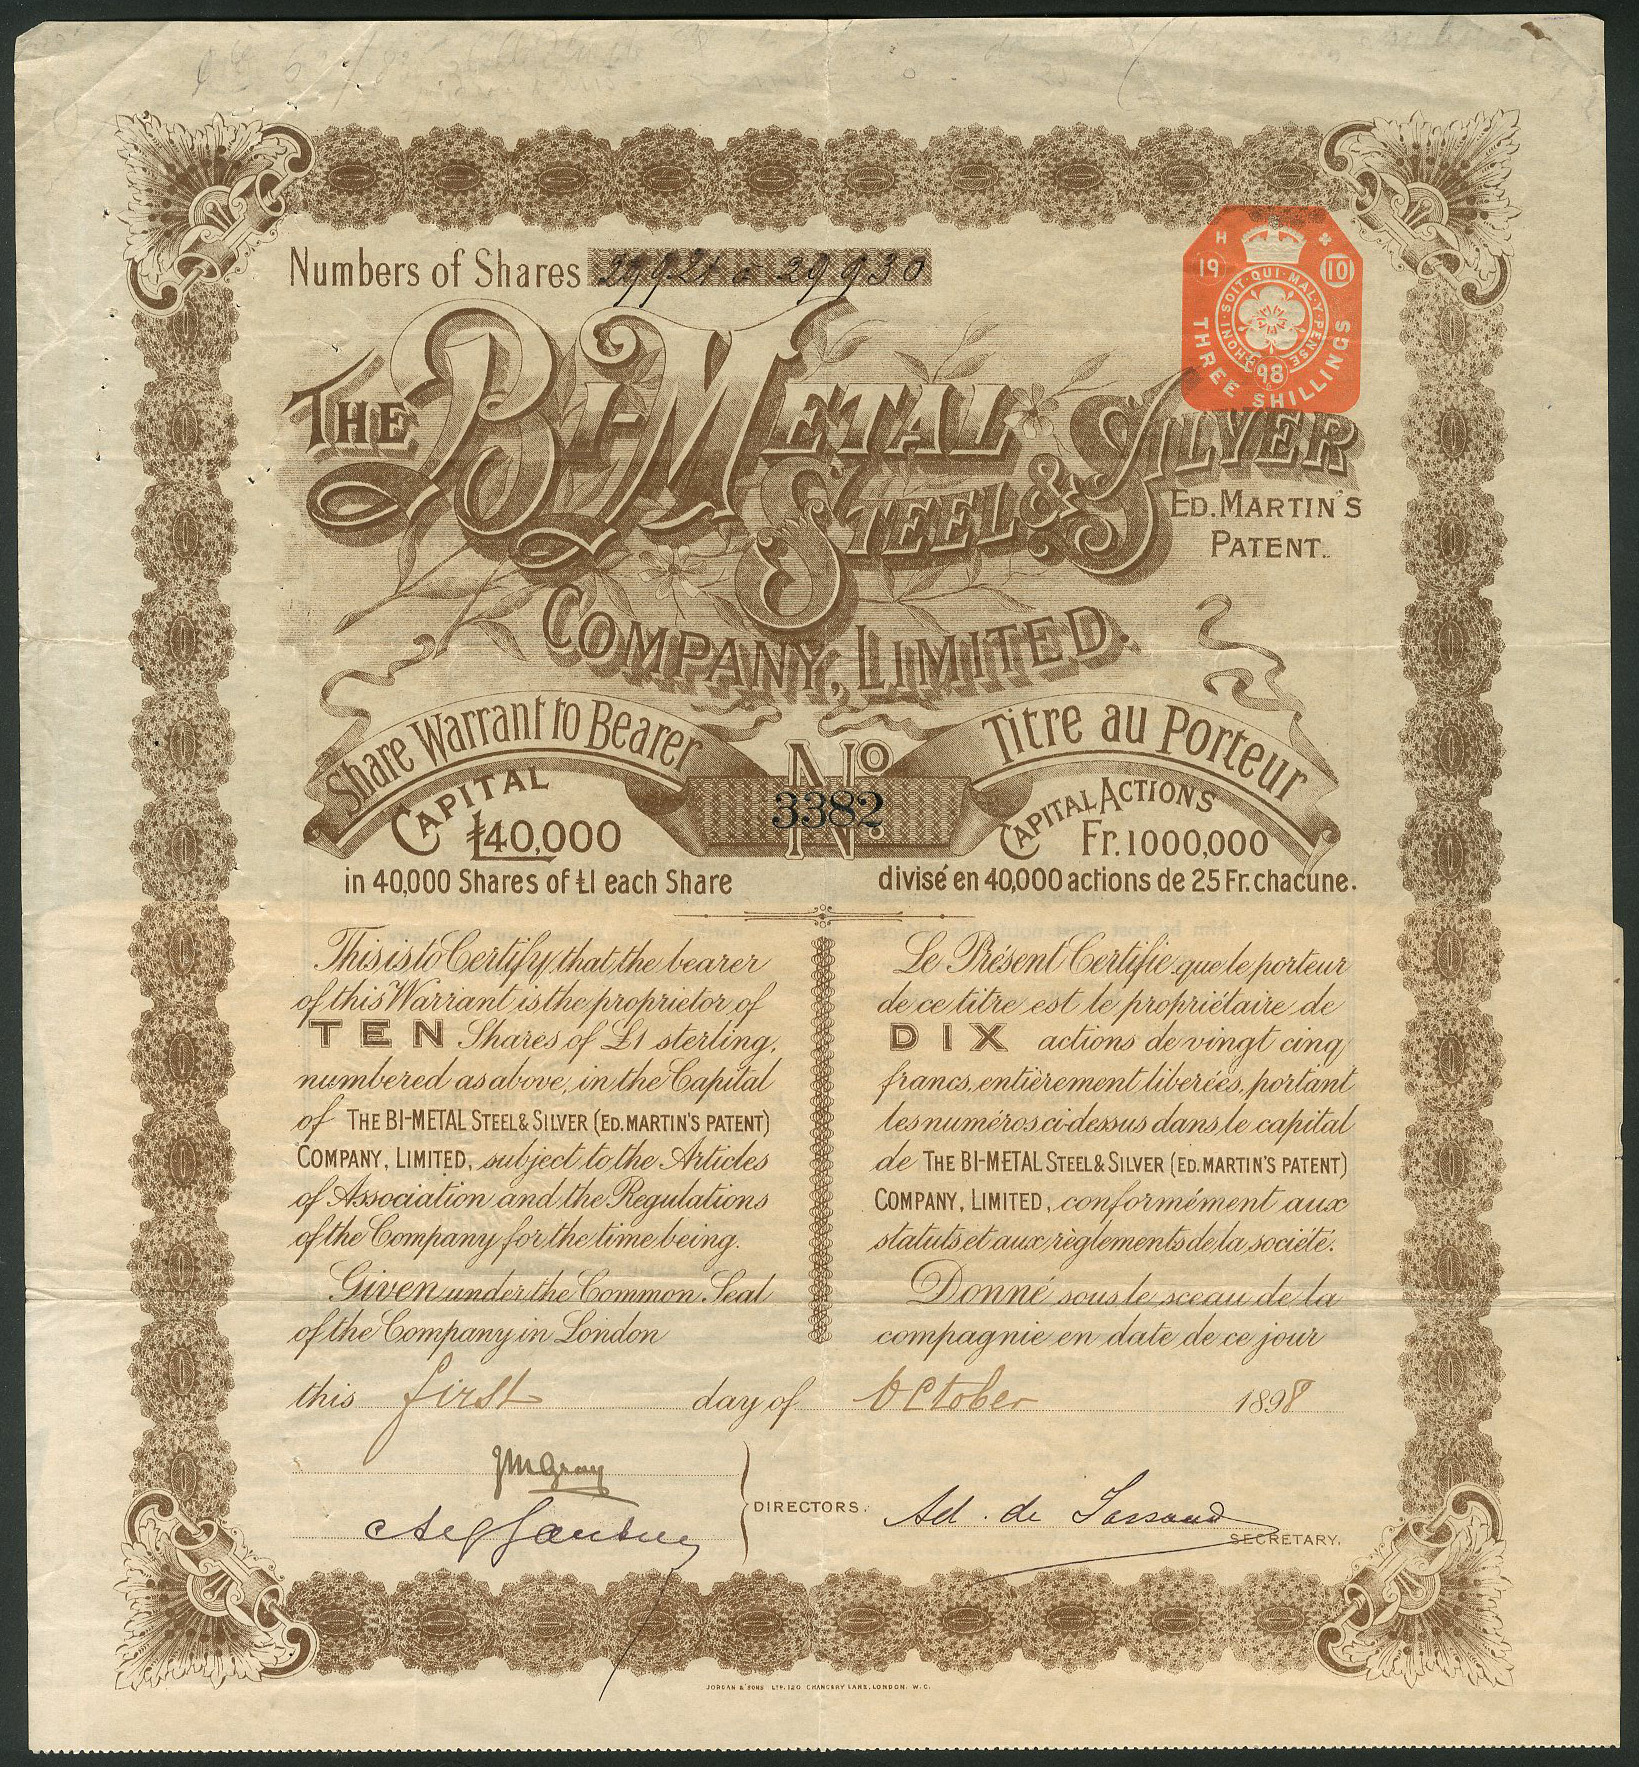 Numbers of Shares 29921 à 29930
H
19 10
HONI·SOIT·QUI·MAL·Y·PENSE
98
THREE SHILLINGS
THE BI-METAL
STEEL & SILVER
ED. MARTIN'S
PATENT.
COMPANY, LIMITED.
Share Warrant to Bearer
Titre au Porteur
No
3382
CAPITAL
£40,000
in 40,000 Shares of £1 each Share
CAPITAL ACTIONS
Fr. 1000,000
divisé en 40,000 actions de 25 Fr. chacune.
This is to Certify that the bearer
of this Warrant is the proprietor of
TEN Shares of £1 sterling,
numbered as above, in the Capital
of THE BI-METAL STEEL & SILVER (ED. MARTIN'S PATENT)
COMPANY, LIMITED, subject to the Articles
of Association and the Regulations
of the Company for the time being.
Given under the Common Seal
of the Company in London
Le Présent Certifie que le porteur
de ce titre est le propriétaire de
DIX actions de vingt cinq
francs, entièrement liberées, portant
les numéros ci-dessus dans le capital
de THE BI-METAL STEEL & SILVER (ED. MARTIN'S PATENT)
COMPANY, LIMITED, conformément aux
statuts et aux règlements de la société.
Donné sous le sceau de la
compagnie en date de ce jour
this first day of October 1898
JM Gray
DIRECTORS.
Ad. de
SECRETARY.
JORDAN & SONS LTD, 120 CHANCERY LANE, LONDON. W.C.